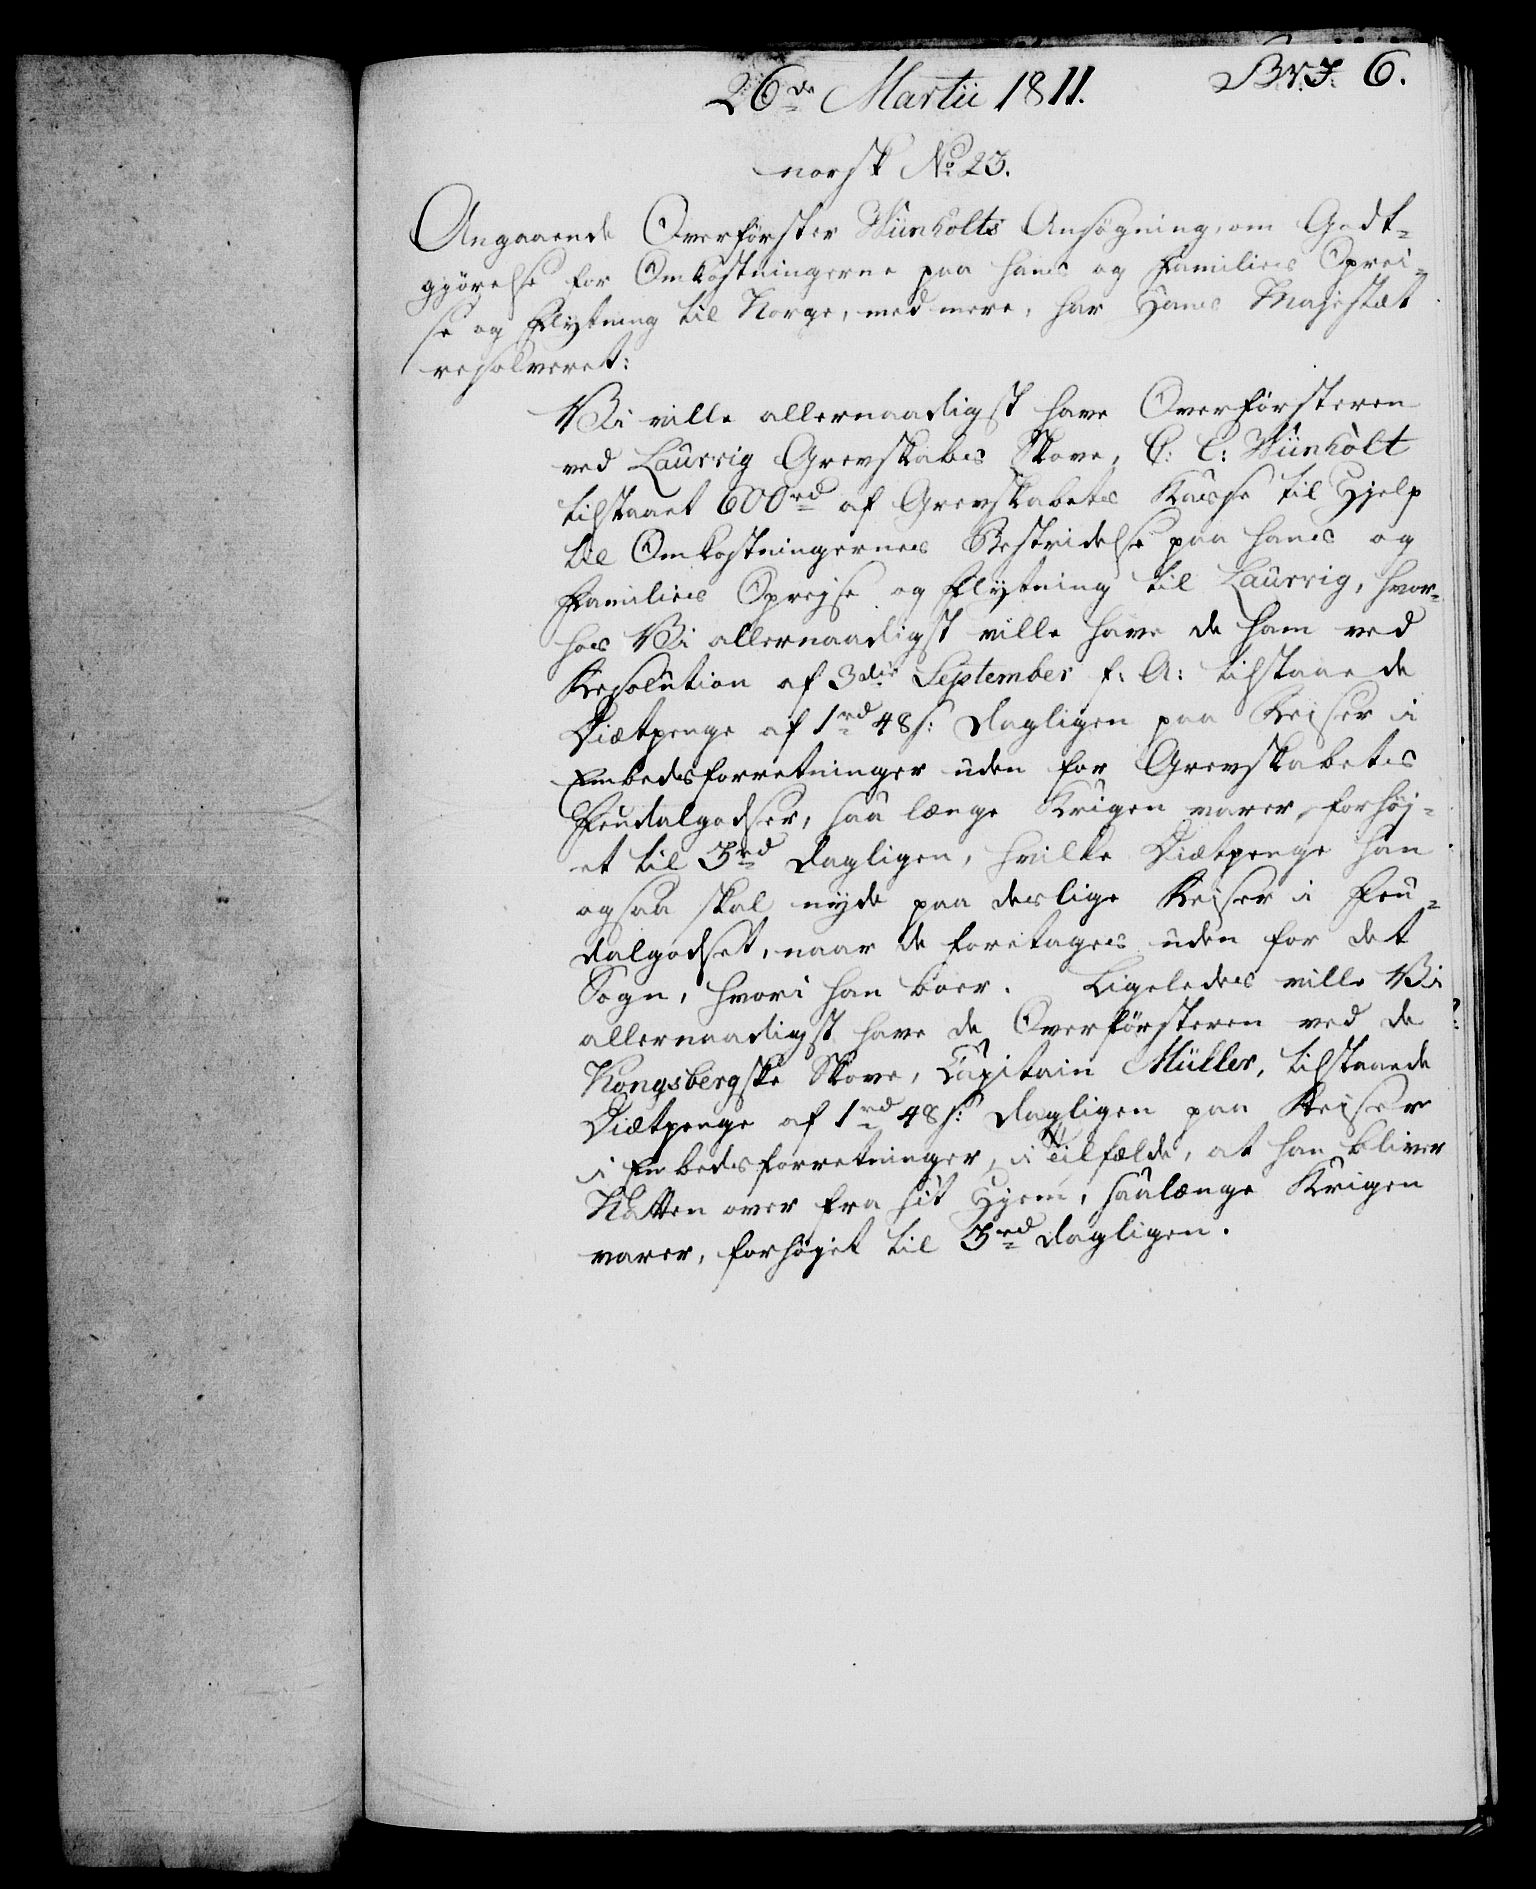 26de Martii 1811.
Br. I. 6.
norsk No 23.
Angaaende Overförster Wünholts Ansøgning, om Godt-
gjörelse for Omkostningerne paa hans og Families Oprei-
se og Flytning til Norge, med mere, har Hans Majestæt
resolveret:
Vi ville allernaadigst have Overförsteren
ved Laurvig Grevskabs Skove, C: C: Wünholt
tilstaaet 600rd af Grevskabets Kasse til Hjelp
til Omkostningernes Bestridelse paa hans og
Families Oprejse og Flytning til Laurvig, hvor-
hos Vi allernaadigst ville have de ham ved
Resolution af 3die September f: A: tilstaaede
Diætpenge af 1rd 48s: dagligen paa Reiser i
Embedsforretninger uden for Grevskabets
Feudalgodser, saa længe Krigen varer, forhøj-
et til 3rd dagligen, hvilke Diætpenge han
ogsaa skal nyde paa deslige Reiser i Feu-
dalgodset, naar de foretages uden for det
Sogn, hvori han boer. Ligeledes ville Vi
allernaadigst have de Overförsteren ved de
Kongsbergske Skove, Capitain Müller, tilstaaede
Diætpenge af 1rd 48s: dagligen paa Reiser
i Embedsforretninger, i Tilfælde, at han bliver
Natten over fra sit Hjem, saalænge Krigen
varer, forhøjet til 3rd dagligen.